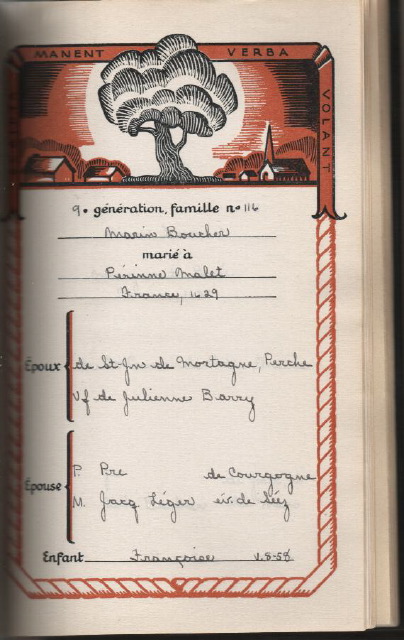 MANENT VERBA
VOLANT
9e génération, famille no 116
Marin Boucher
marié à
Périnne Malet
France, 1629
Époux de St-Jn de Mortagne, Perche
Vf de Julienne Barry
Épouse
P. Pre de Courgogne
M. Jacq. Léger év. de Séez
Enfant Françoise V.8-58